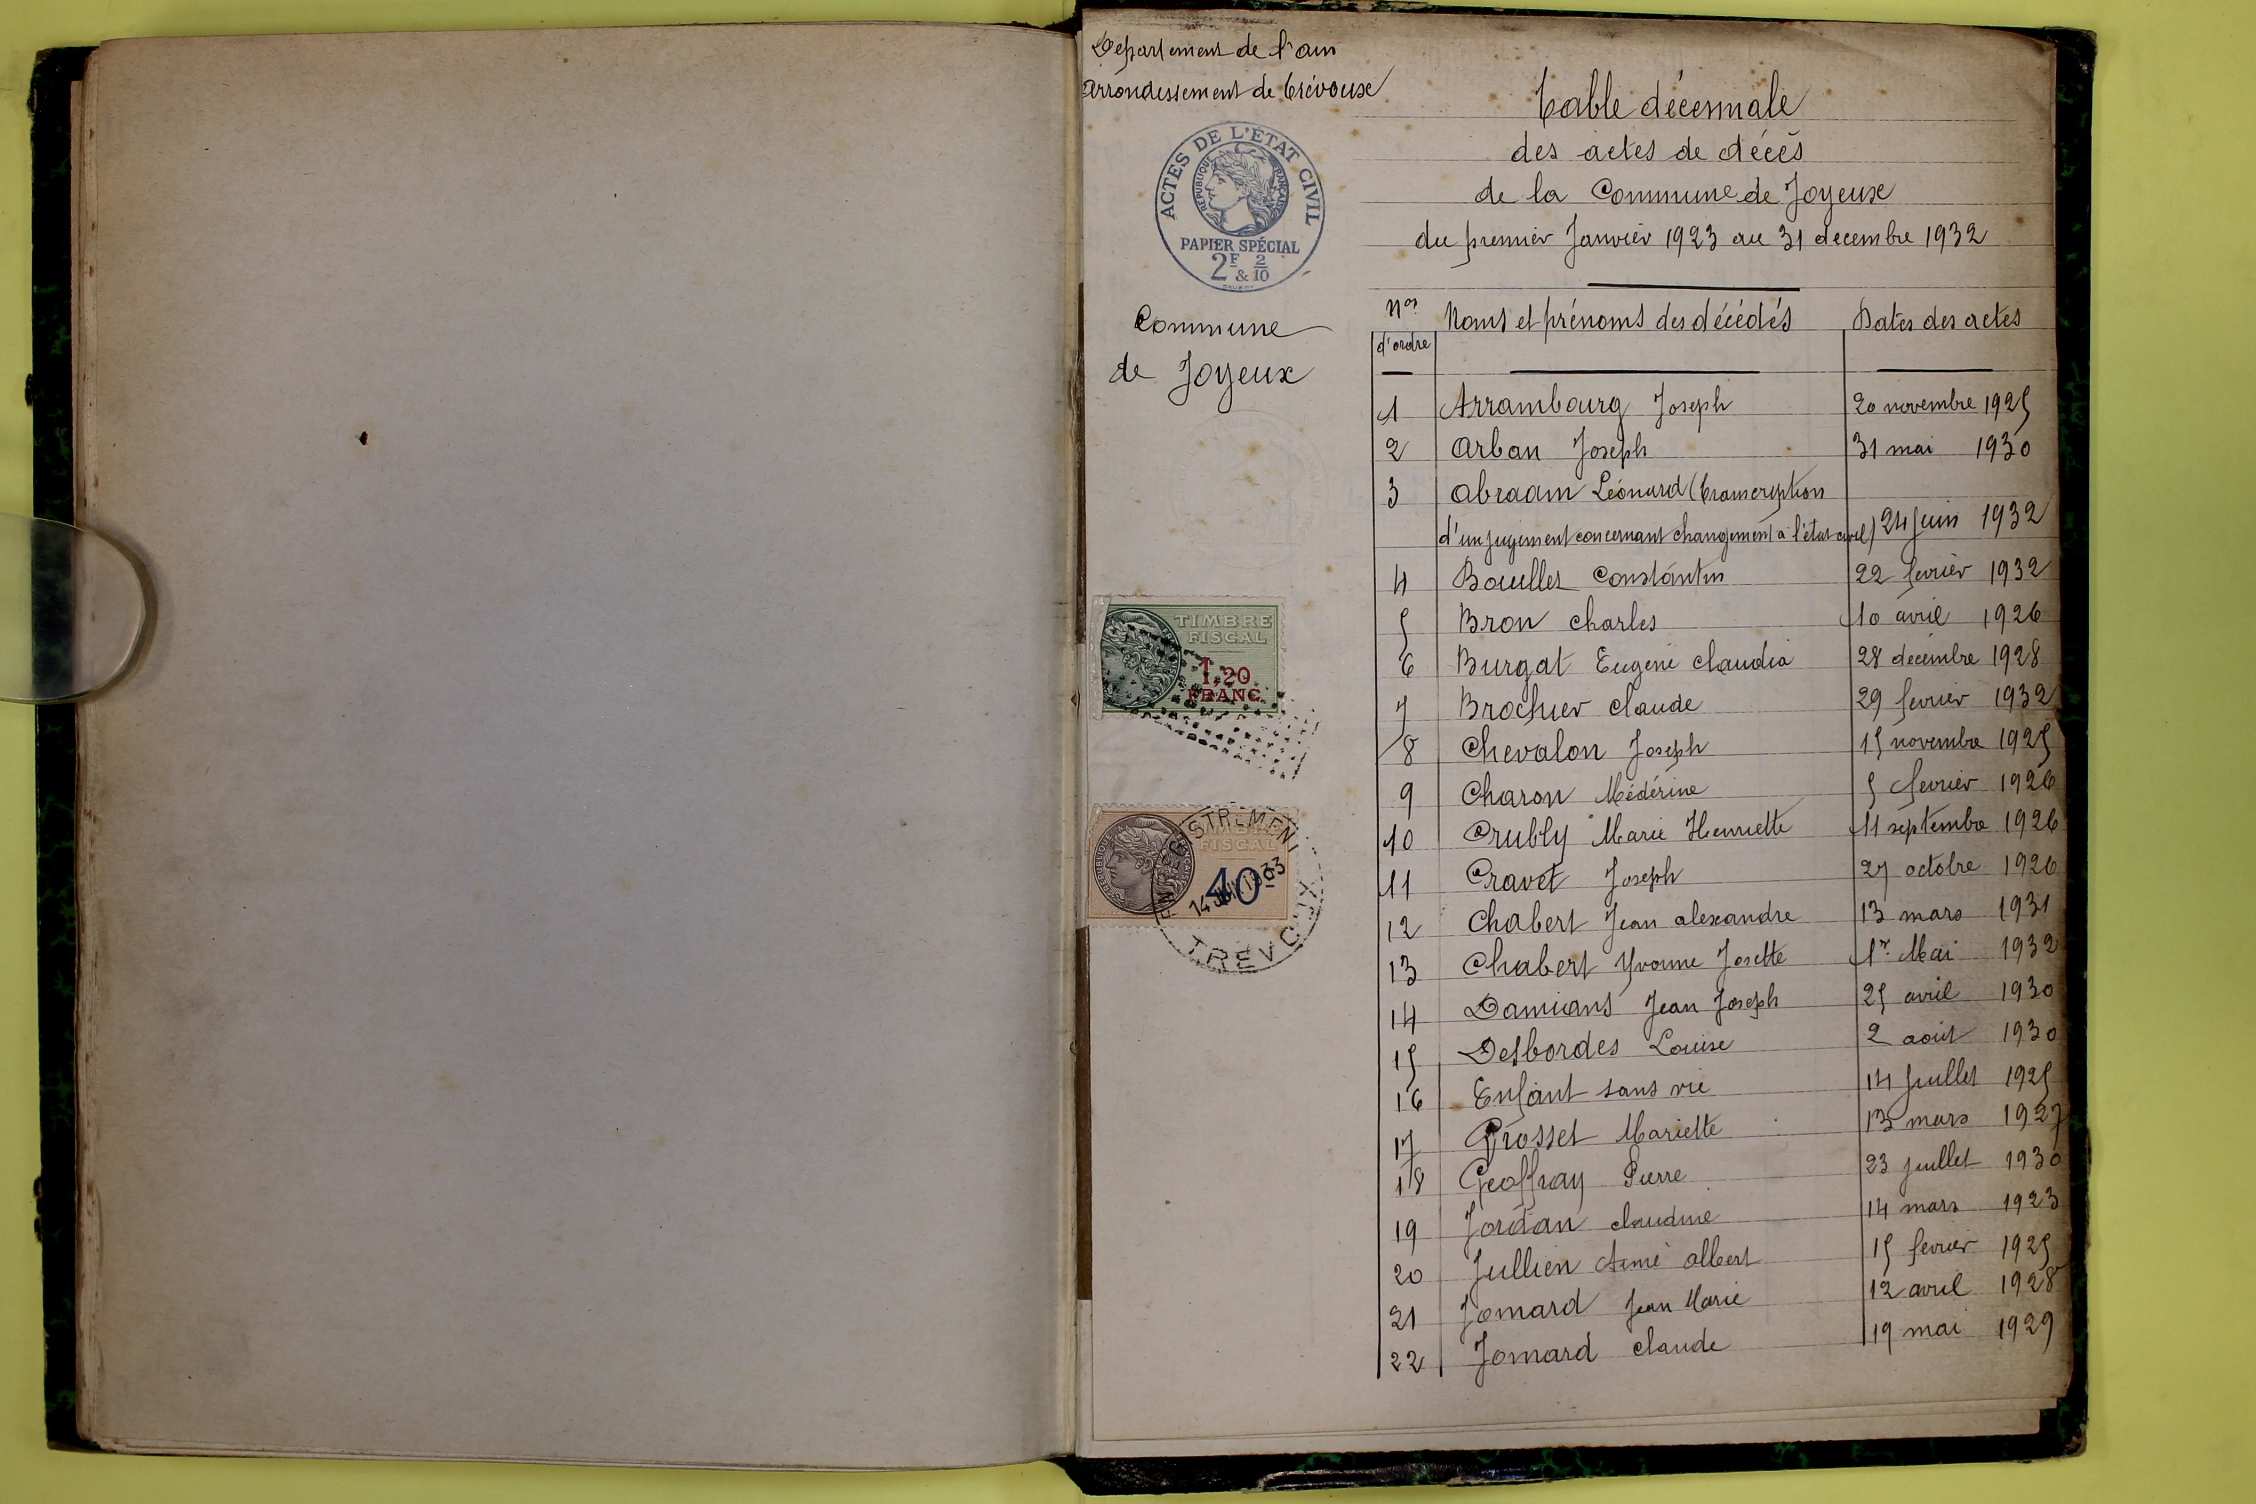 Departement de l'ain
Arrondissement de Trévoux
Table décennale
des actes de décès
de la Commune de Joyeux
du premier Janvier 1923 au 31 decembre 1932
ACTES DE L'ÉTAT CIVIL
RÉPUBLIQUE FRANÇAISE
PAPIER SPÉCIAL
2F & 2/10
Commune
de Joyeux
Nos d'ordre Noms et prénoms des décédés Dates des actes
1 Arrambourg Joseph 20 novembre 1925
2 Arban Joseph 31 mai 1930
3 Abraam Léonard (transcription
d'un jugement concernant changement à l'état civil) 24 juin 1932
4 Boullet Constantin 22 fevrier 1932
5 Bron Charles 10 avril 1926
6 Burgat Eugenie Claudia 28 decembre 1928
7 Brochier Claude 29 fevrier 1932
8 Chevalon Joseph 15 novembre 1925
9 Charon Médérine 5 fevrier 1926
10 Crubly Marie Henriette 11 septembre 1926
11 Cravet Joseph 27 octobre 1926
12 Chabert Jean Alexandre 13 mars 1931
13 Chabert Yvonne Josette 1er Mai 1932
14 Damians Jean Joseph 25 avril 1930
15 Desbordes Louise 2 aout 1930
16 Enfant sans vie 14 Juillet 1925
17 Grosset Mariette 13 mars 1927
18 Geoffray Pierre 23 juillet 1930
19 Jordan Claudine 14 mars 1923
20 Jullien Aimé Albert 15 fevrier 1925
21 Jomard Jean Marie 12 avril 1928
22 Jomard Claude 19 mai 1929
TIMBRE
FISCAL
1,20
FRANC
TIMBRE
FISCAL
40
ENREGISTREMENT
1933
TREVOUX